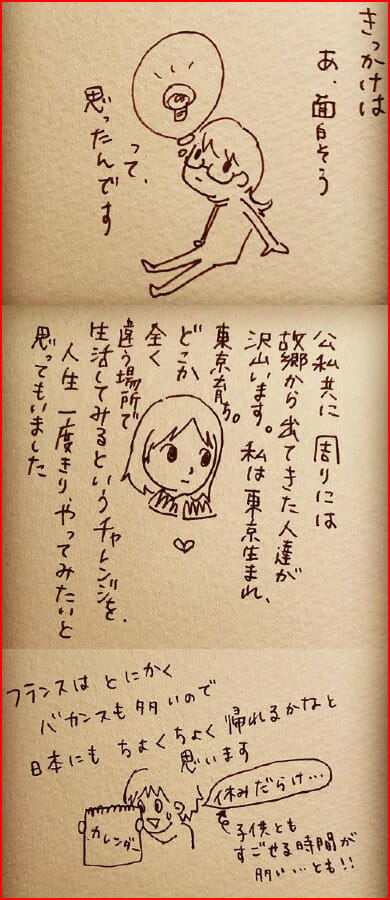 きっかけは
あ、面白そう
って、
思ったんです
公私共に 周りには
故郷から出てきた人達が
沢山います。私は東京生まれ、
東京育ち。
どこか
全く
違う場所で
生活してみるというチャレンジを、
人生一度きり、やってみたいと
思ってもいました
フランスは とにかく
バカンスも多いので
日本にも ちょくちょく 帰れるかなと
思います
休みだらけ…
カレンダー
子供とも
すごせる時間が
多いとも!!